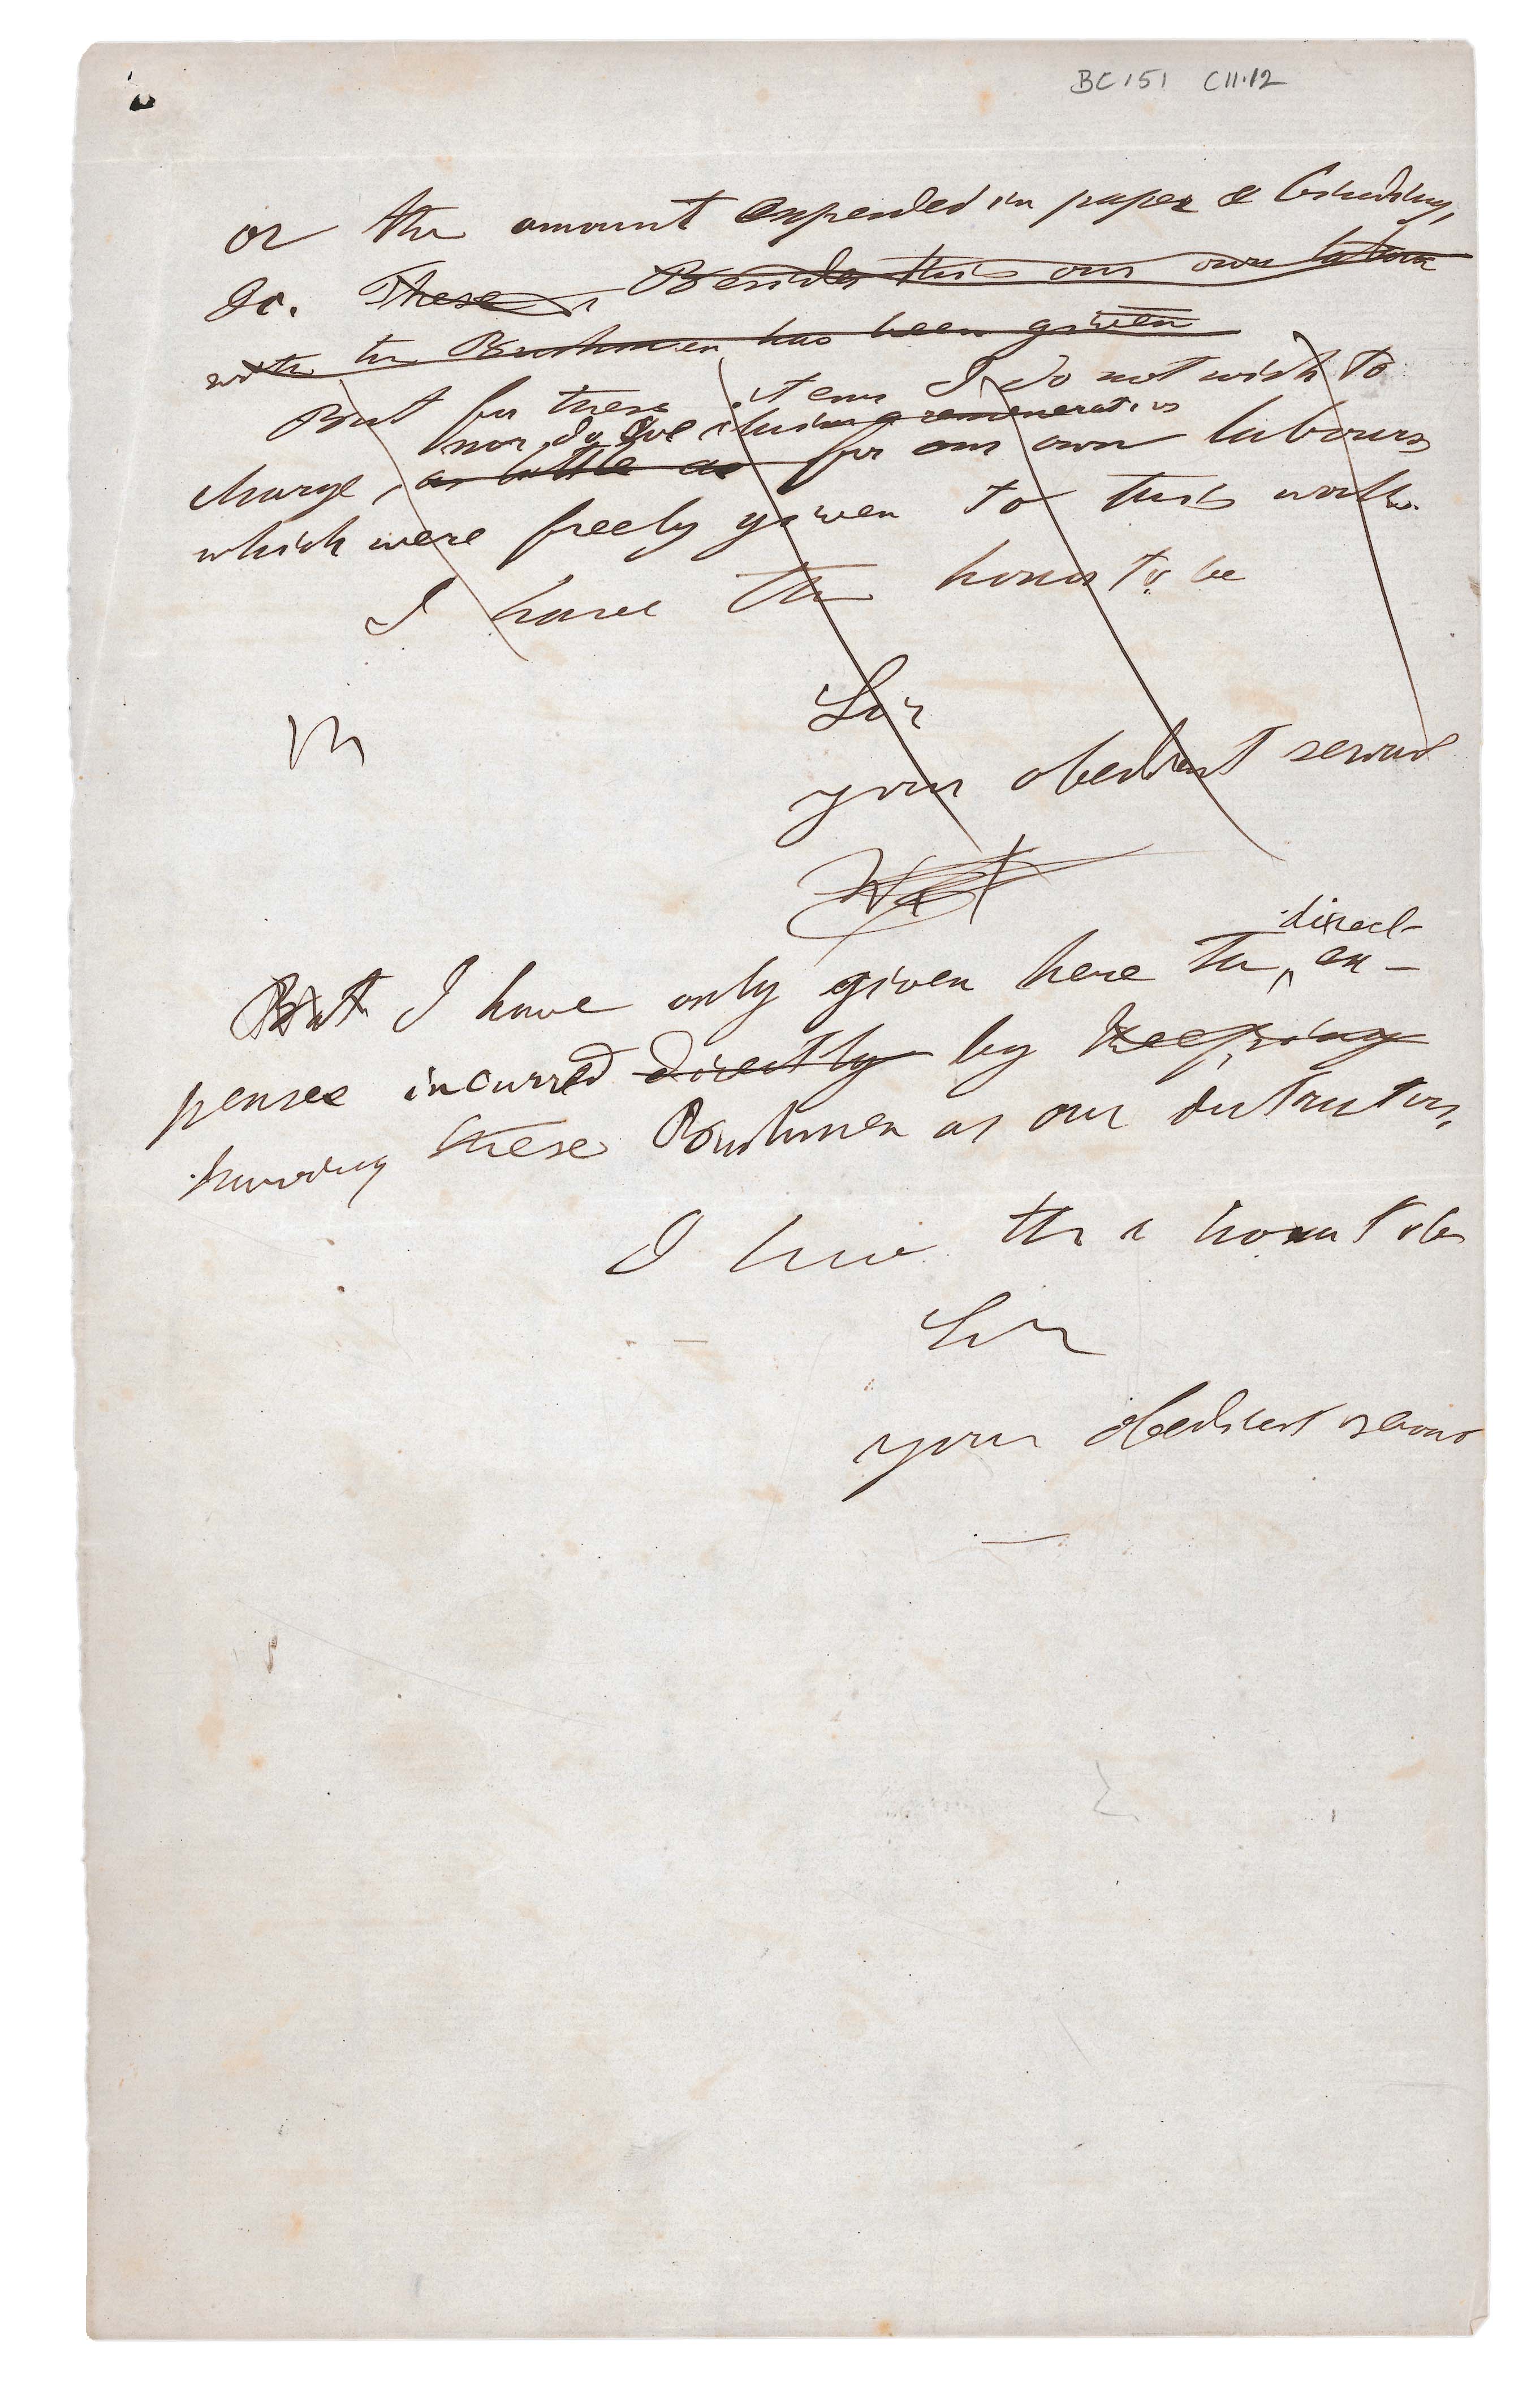 BC 151 C11.12
or the amount expended in paper & binding,
&c. These Besides this our own labour
with the Bushmen has been given
But for these items I do not wish to
nor do we claim a remuneration
charge, as little as for our own labours
which were freely given to this work.
I have the honor to be
Sir
your obedient servant
direct
But I have only given here the ex-
penses incurred directly by keeping
having these Bushmen as our instructors.
I have the honour to be
Sir
your obedient servant